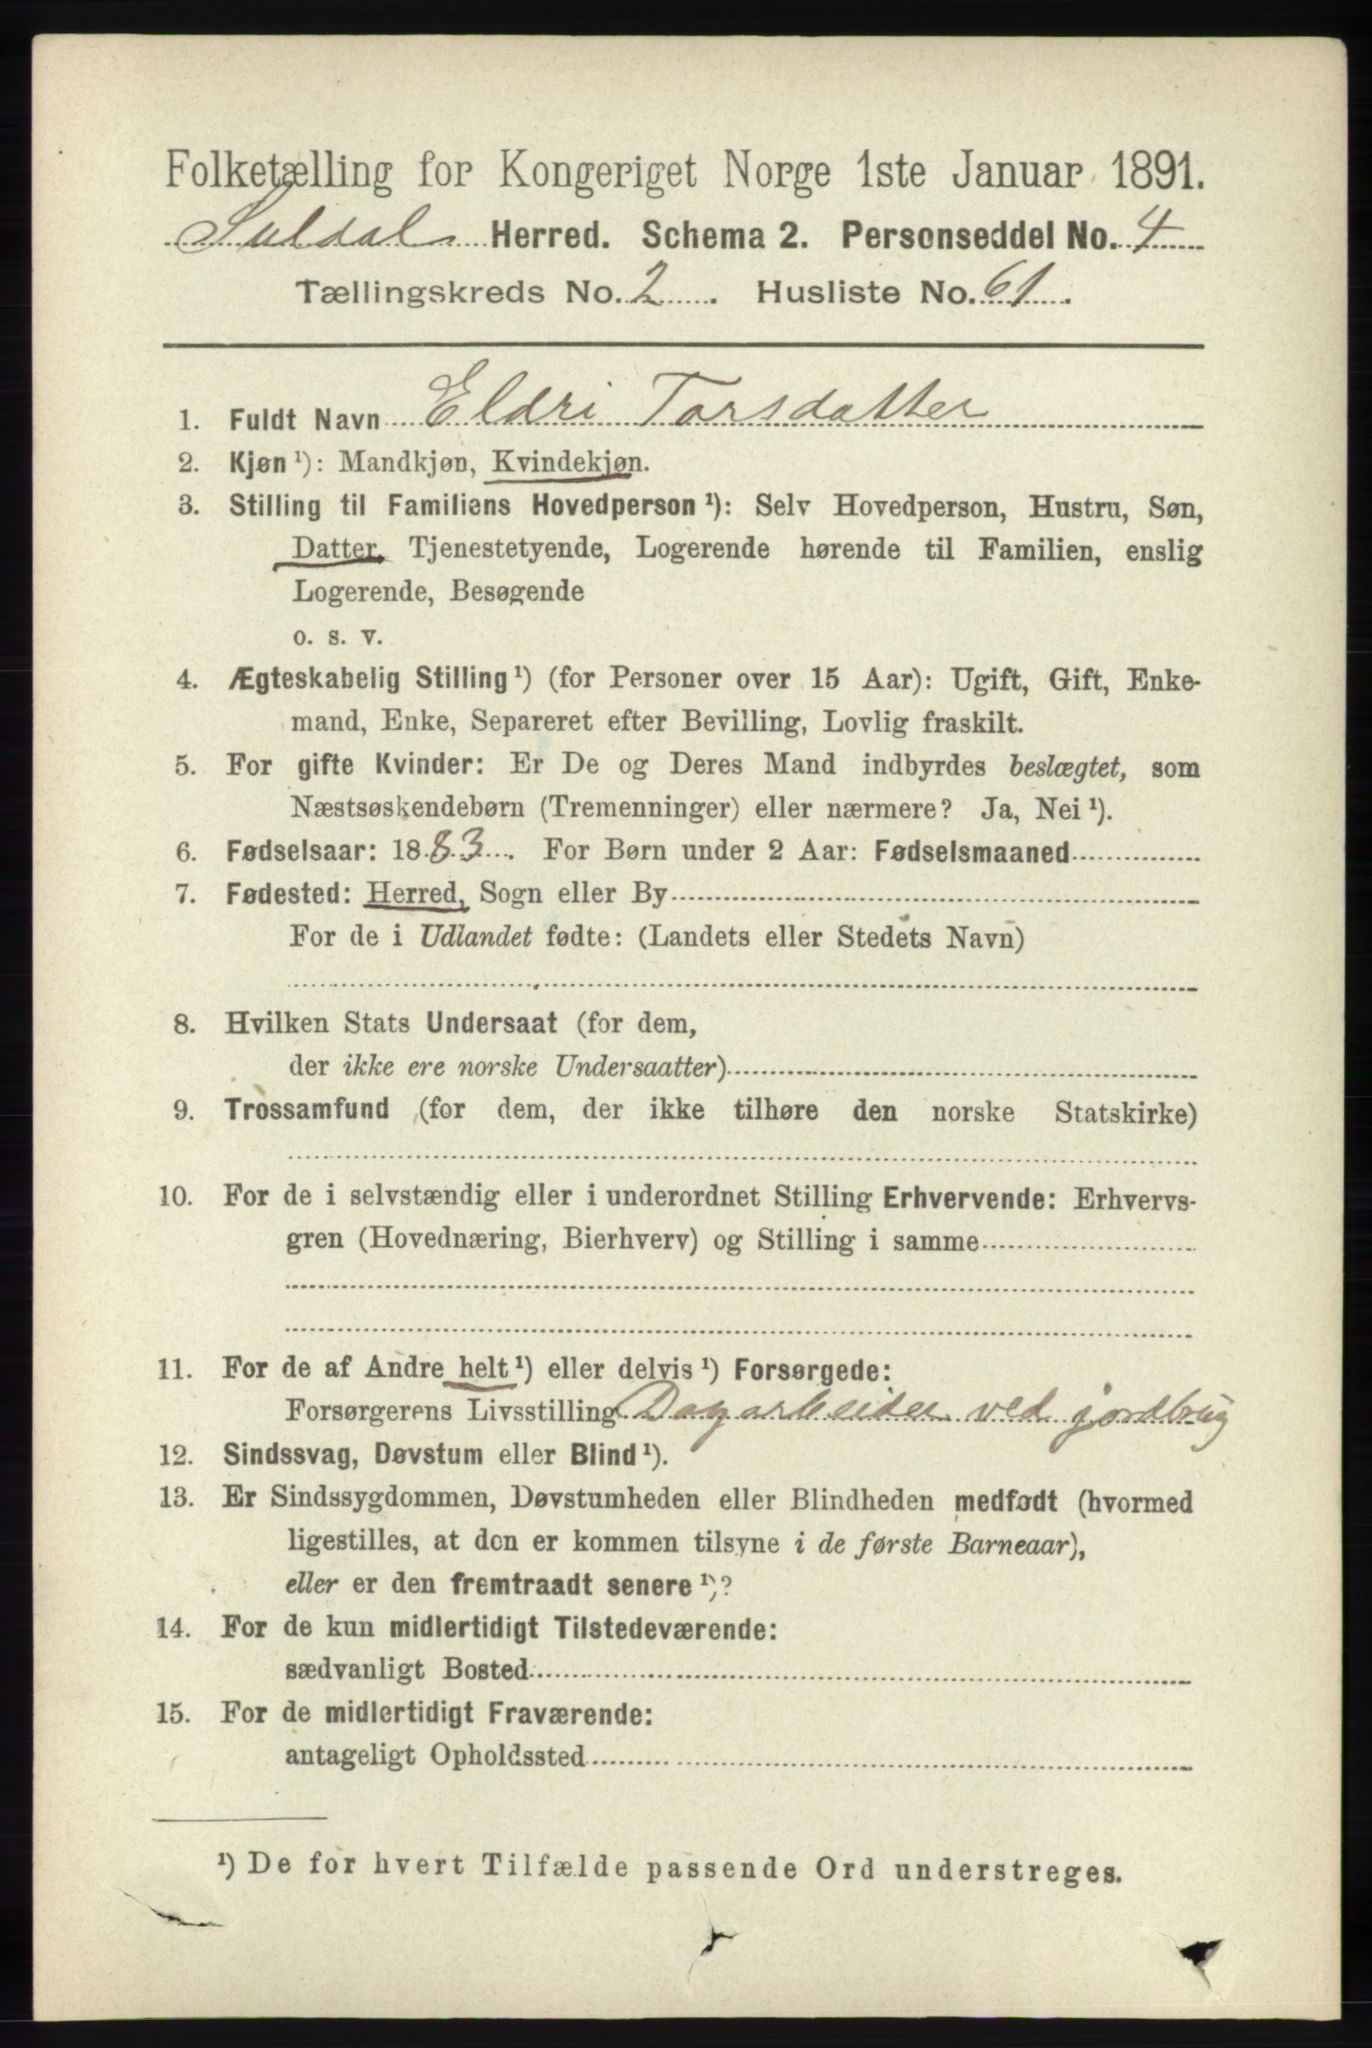 Folketælling for Kongeriget Norge 1ste Januar 1891.
Suldal Herred. Schema 2. Personseddel No. 4
Tællingskreds No. 2. Husliste No. 61.
1. Fuldt Navn Eldri Torsdatter
2. Kjøn ¹): Mandkjøn, Kvindekjøn.
3. Stilling til Familiens Hovedperson ¹): Selv Hovedperson, Hustru, Søn,
Datter, Tjenestetyende, Logerende hørende til Familien, enslig
Logerende, Besøgende
o. s. v.
4. Ægteskabelig Stilling ¹) (for Personer over 15 Aar): Ugift, Gift, Enke-
mand, Enke, Separeret efter Bevilling, Lovlig fraskilt.
5. For gifte Kvinder: Er De og Deres Mand indbyrdes beslægtet, som
Næstsøskendebørn (Tremenninger) eller nærmere? Ja, Nei ¹).
6. Fødselsaar: 1883. For Børn under 2 Aar: Fødselsmaaned
7. Fødested: Herred, Sogn eller By
For de i Udlandet fødte: (Landets eller Stedets Navn)
8. Hvilken Stats Undersaat (for dem,
der ikke ere norske Undersaatter)
9. Trossamfund (for dem, der ikke tilhøre den norske Statskirke)
10. For de i selvstændig eller i underordnet Stilling Erhvervende: Erhvervs-
gren (Hovednæring, Bierhverv) og Stilling i samme
11. For de af Andre helt ¹) eller delvis ¹) Forsørgede:
Forsørgerens Livsstilling Dagarbeider ved jordbrug
12. Sindssvag, Døvstum eller Blind ¹).
13. Er Sindssygdommen, Døvstumheden eller Blindheden medfødt (hvormed
ligestilles, at den er kommen tilsyne i de første Barneaar),
eller er den fremtraadt senere ¹)?
14. For de kun midlertidigt Tilstedeværende:
sædvanligt Bosted
15. For de midlertidigt Fraværende:
antageligt Opholdssted
¹) De for hvert Tilfælde passende Ord understreges.